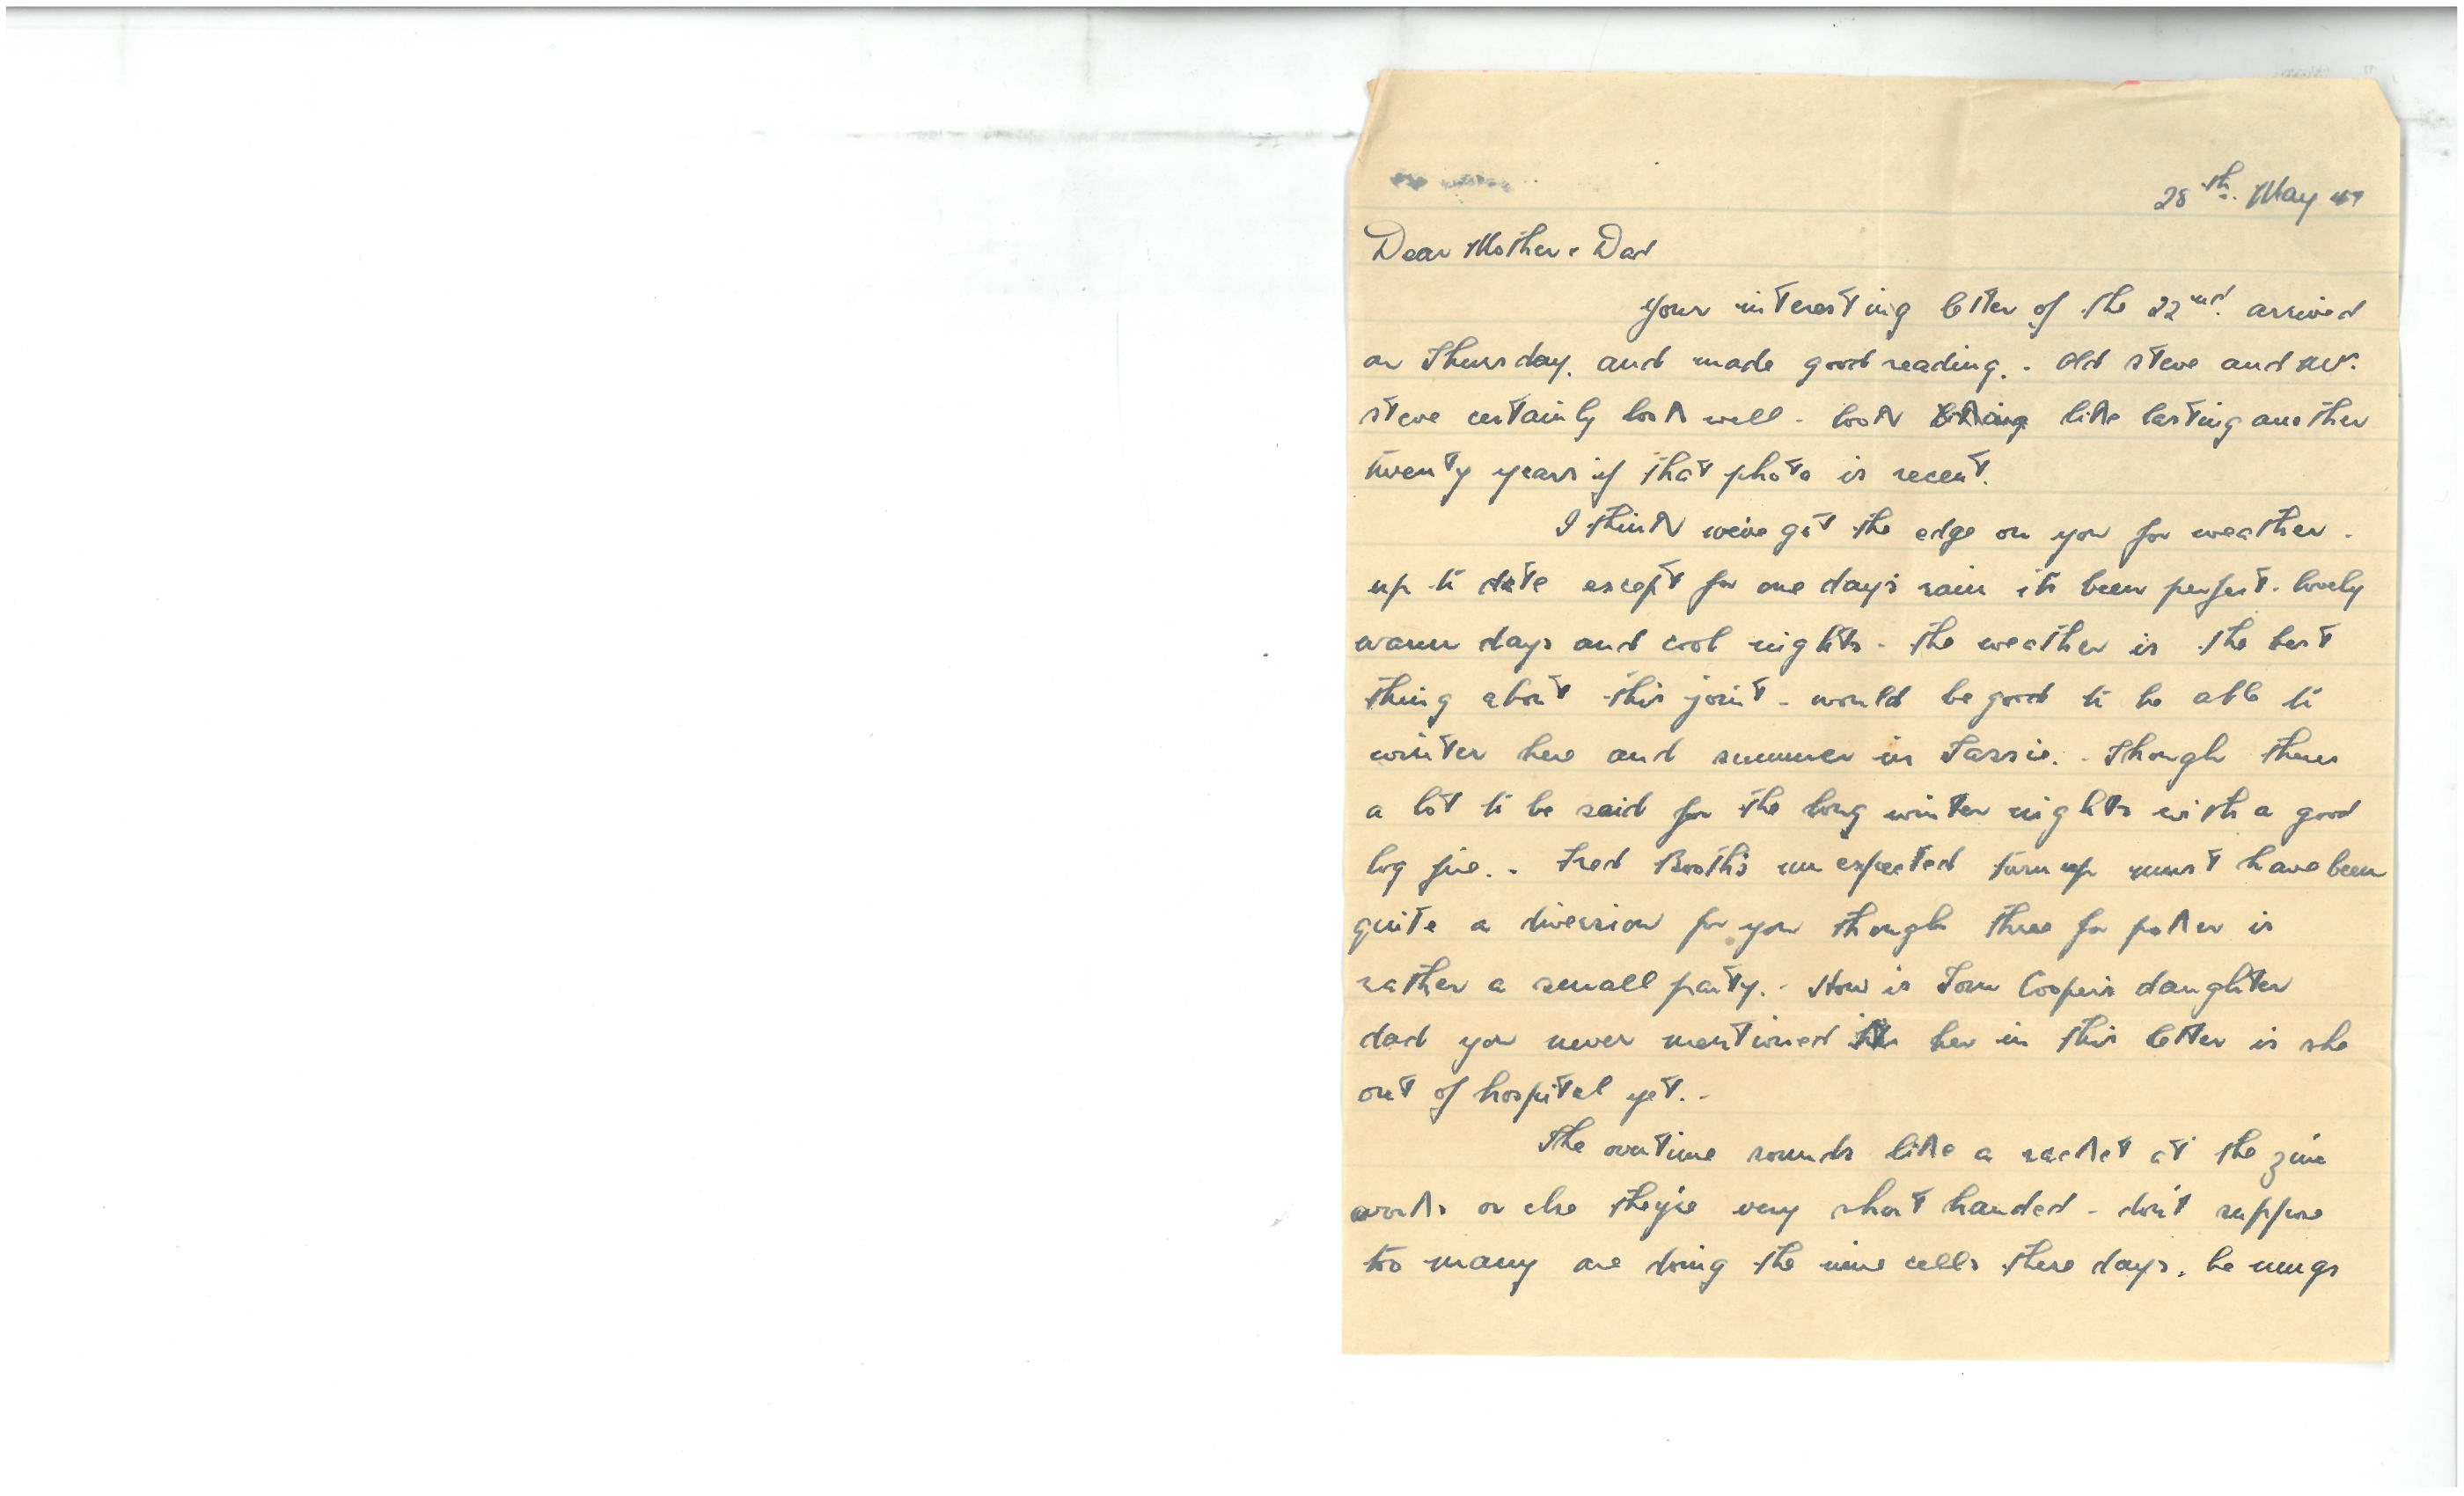 28th. May 49
Dear Mother & Dad
Your interesting letter of the 22nd. arrived
on Thursday. and made good reading. - Old Steve and Mr.
Steve certainly look well - look like lasting another
twenty years if that photo is recent.
I think we've got the edge on you for weather -
up to date except for one day's rain its been perfect - lovely
warm days and cool nights - the weather is the best
thing about this joint - would be good to be able to
winter here and summer in Tassie. - Though theres
a lot to be said for the long winter nights with a good
log fire. - Fred Booth's unexpected turn up must have been
quite a diversion for you though three for poker is
rather a small party. - How is Tom Cooper's daughter
dad you never mentioned her in this letter is she
out of hospital yet. -
The overtime sounds like a racket at the zinc
works or else they're very short handed - don't suppose
too many are doing the nine cells these days. he mugs